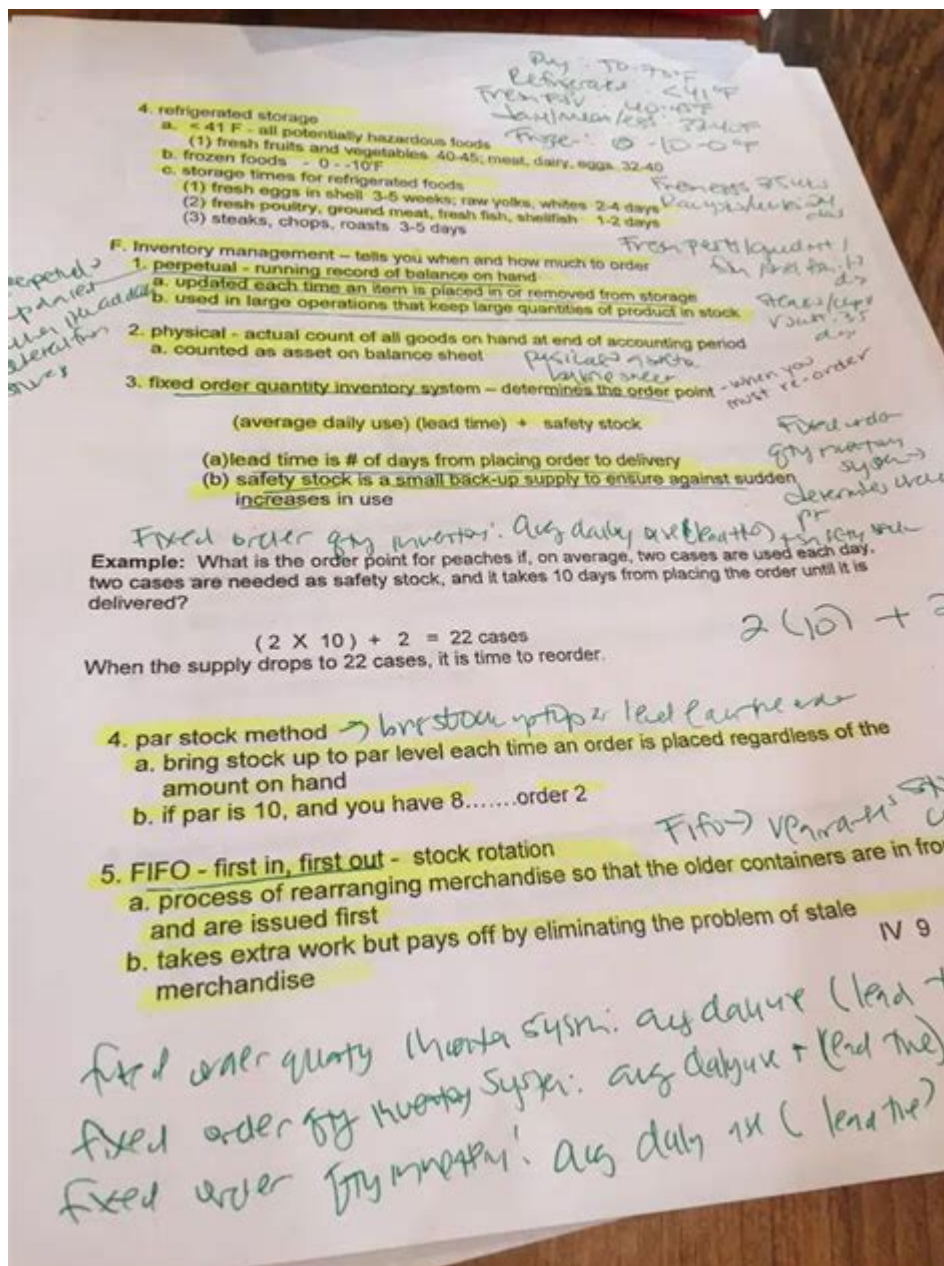 Dry: 50-70°F
Refrigerate: <41°F
40-45°F
32-40°F
-10-0°F
4. refrigerated storage
a. < 41 F - all potentially hazardous foods
(1) fresh fruits and vegetables 40-45; meat, dairy, eggs 32-40
b. frozen foods - 0 - -10°F
c. storage times for refrigerated foods
(1) fresh eggs in shell 3-5 weeks; raw yolks, whites 2-4 days
(2) fresh poultry, ground meat, fresh fish, shellfish 1-2 days
(3) steaks, chops, roasts 3-5 days
Fresh eggs
F. Inventory management – tells you when and how much to order
1. perpetual - running record of balance on hand
a. updated each time an item is placed in or removed from storage
b. used in large operations that keep large quantities of product in stock
2. physical - actual count of all goods on hand at end of accounting period
a. counted as asset on balance sheet
3. fixed order quantity inventory system – determines the order point - when you
must re-order
(average daily use) (lead time) + safety stock
(a)lead time is # of days from placing order to delivery
(b) safety stock is a small back-up supply to ensure against sudden
increases in use
Fixed order
system
determines
Fixed order qty inventory: avg daily use
Example: What is the order point for peaches if, on average, two cases are used each day,
two cases are needed as safety stock, and it takes 10 days from placing the order until it is
delivered?
(2 X 10) + 2 = 22 cases
2(10) + 2
When the supply drops to 22 cases, it is time to reorder.
4. par stock method →
a. bring stock up to par level each time an order is placed regardless of the
amount on hand
b. if par is 10, and you have 8.......order 2
Fifo →
5. FIFO - first in, first out - stock rotation
a. process of rearranging merchandise so that the older containers are in fro
and are issued first
b. takes extra work but pays off by eliminating the problem of stale
merchandise
IV 9
fixed order system: avg (lead
fixed order qty inventory system: avg + (lead time)
fixed order avg daily (lead